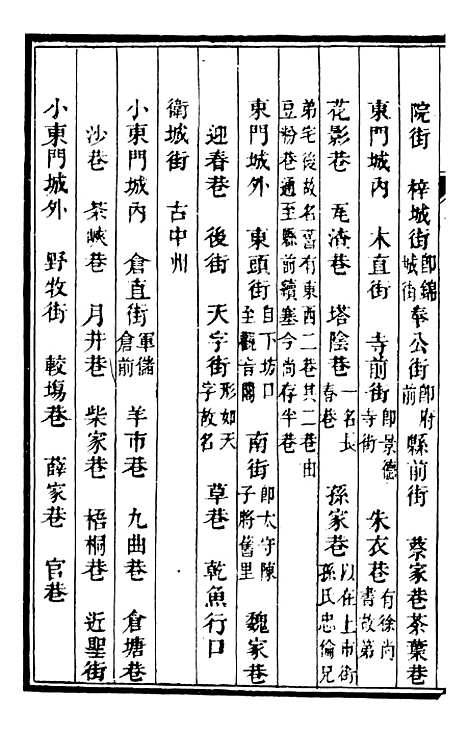 院街 梓城街即錦城街奉公街即府前縣前街 蔡家巷茶葉巷
東門城內 木直街 寺前街即景德寺街 朱衣巷有徐尚書故第
花影巷 塔陰巷一名長春巷 孫家巷以在上市街孫氏忠倫兄
弟宅後故名舊有東西二巷其二巷由豆粉巷通至縣前續塞今尚存半巷
東門城外 東頭街自下坊口至觀音閣 南街即太守陳子將舊里 魏家巷
迎春巷 後街 天字街形如天字故名 草巷 乾魚行口
衛城街 古中州
小東門城內 倉直街軍儲倉前 羊市巷 九曲巷 倉塘巷
沙巷 茶峽巷 月井巷 柴家巷 梧桐巷 近聖街
小東門城外 野牧街 較塲巷 薛家巷 官巷